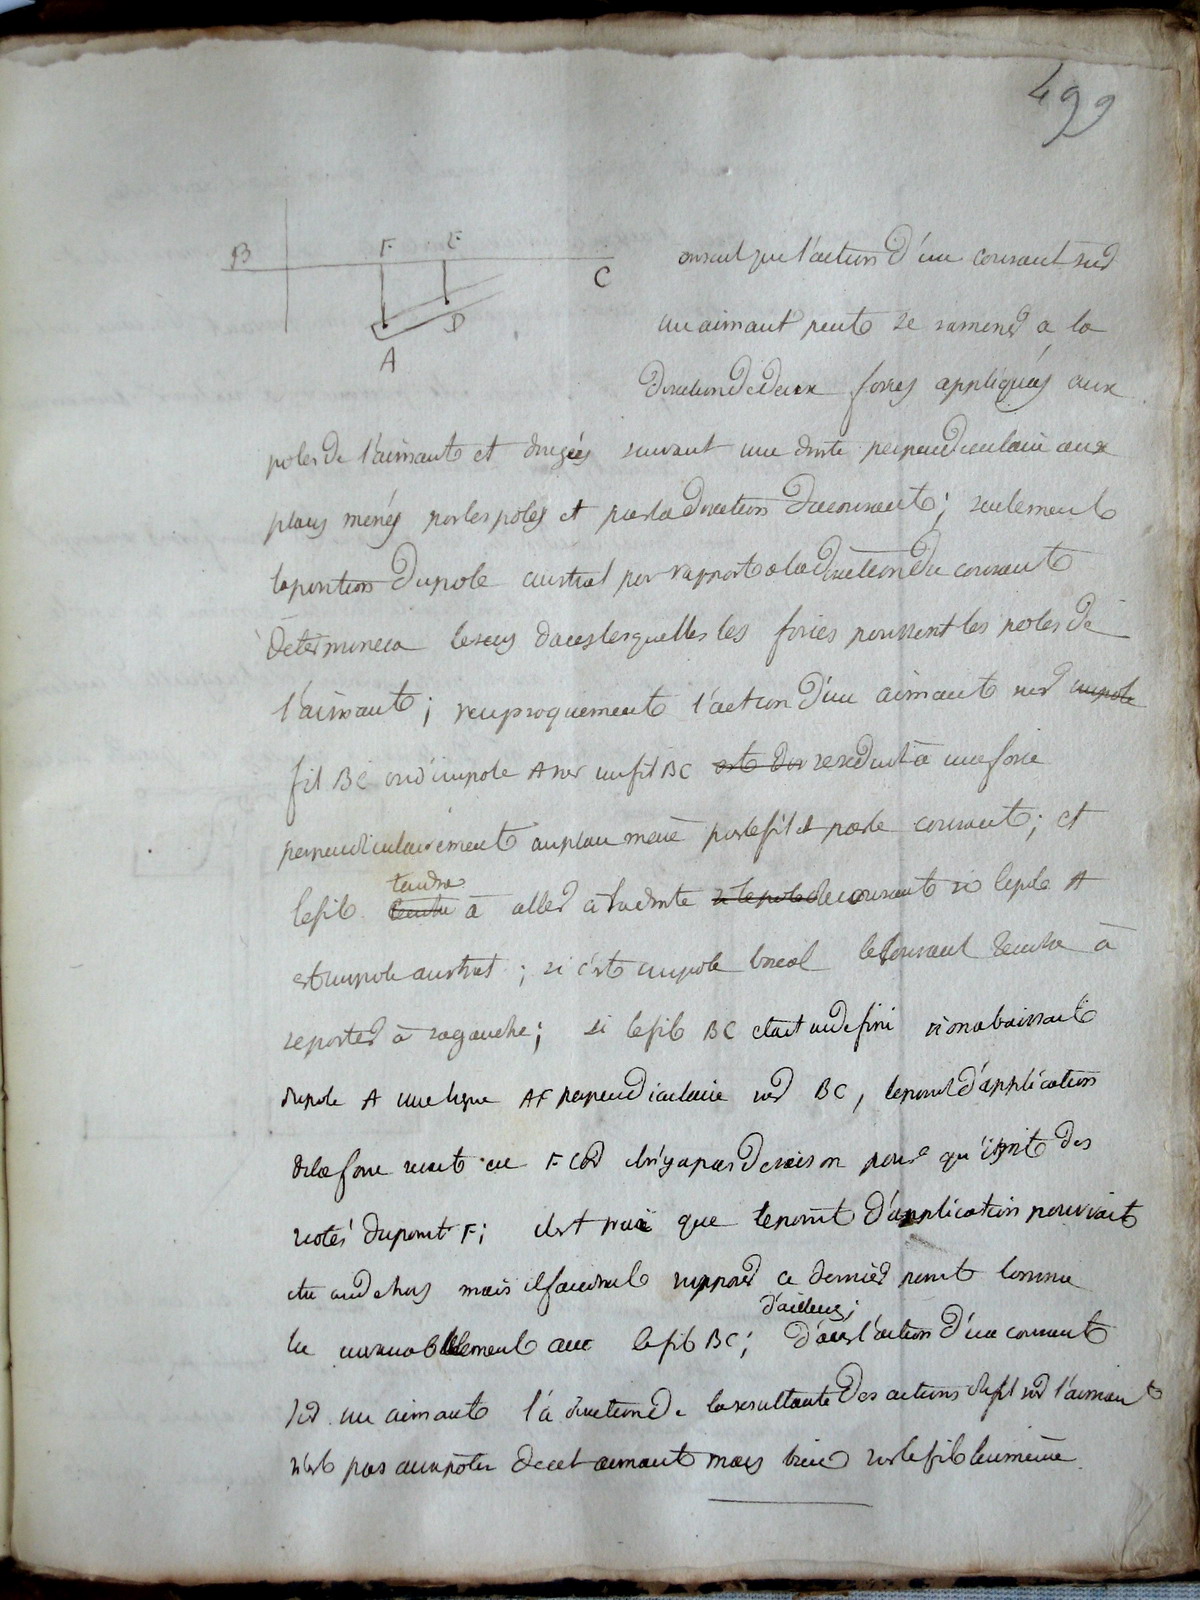 499
B F E C
A D
on sait que l'action d'un courant sur
un aimant peut se ramener a la
direction de deux forces appliquées aux
poles de l'aimant et dirigées suivant une droite perpendiculaire aux
plans menés par les poles et par la direction du courant; seulement
la position du pole austral par rapport a la direction du courant
determinera le sens dans lesquelles les forces poussent les poles de
l'aimant; reciproquement l'action d'un aimant sur un pole
fil BC ou d'un pole A sur un fil BC est se reduit à une force
perpendiculairement au plan mené par le fil et par le courant; et
tendra
le fil tendra à aller à la droite si le pole de courant si le pole A
est un pole austral; si c'est un pole boreal le courant tendra à
se porter à sa gauche; si le fil BC etait indefini si on abaissait
du pole A une ligne AF perpendiculaire sur BC, le point d'application
de la force serait en F car il n'y a pas de raison pour qu'il soit des
cotés du point F; il est vrai que le point d'application pourrait
etre en dehors mais il faudrait supposer ce dernier point comme
d'ailleurs;
lié invariablement avec le fil BC; dans l'action d'un courant
sur un aimant l'a direction de la resultante des actions du fil sur l'aimant
n'est pas aux poles de cet aimant mais bien sur le fil lui même